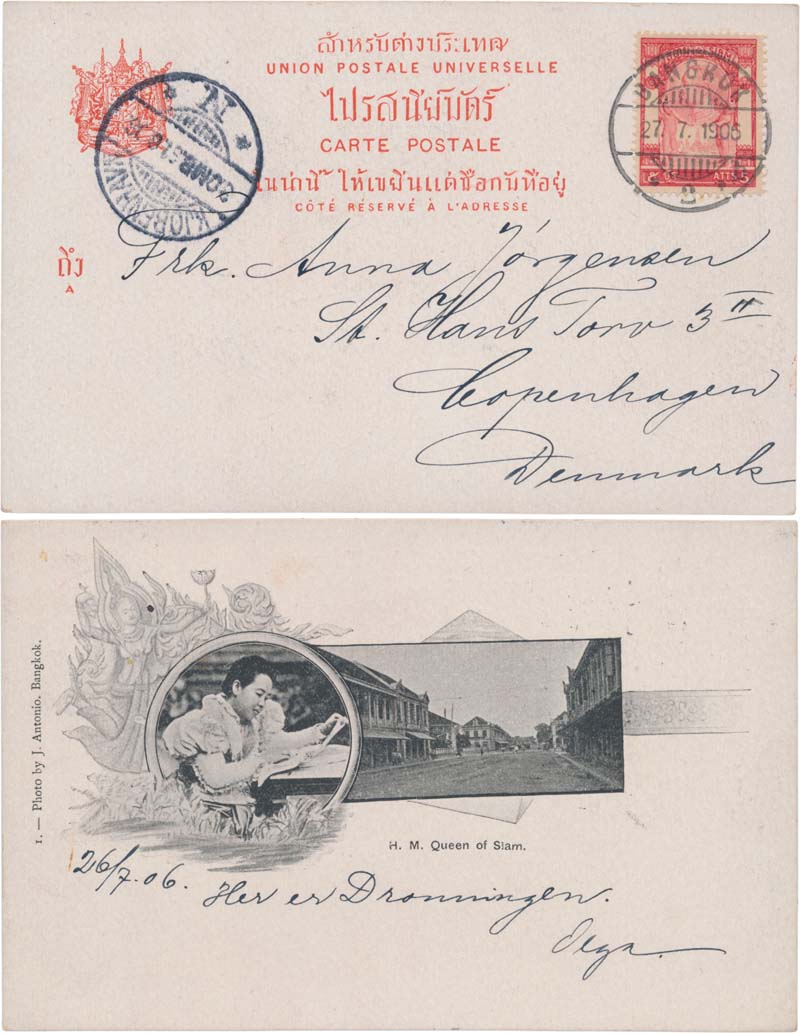 สำหรับต่างประเทศ
UNION POSTALE UNIVERSELLE
ไปรสนียบัตร์
CARTE POSTALE
ในน่านี้ ให้เขียนแต่ชื่อกับที่อยู่
CÔTÉ RÉSERVÉ À L'ADRESSE
KJØBENHAVN
N
BANGKOK
27. 7. 1906
2
ATTS 5
ถึง
A
Frk. Anna Jørgensen
St. Hans Torv 3 II
Copenhagen
Denmark
1. — Photo by J. Antonio. Bangkok.
H. M. Queen of Siam.
26/7.06. Her er Dronningen.
Olga.